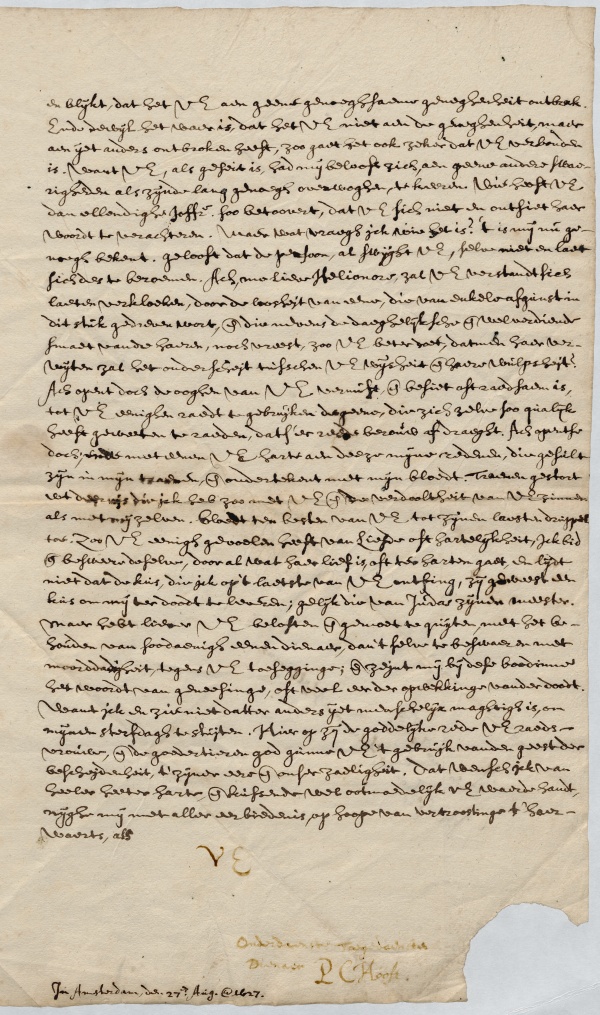 en blijkt, dat het VE aen geene genoeghsaeme geneghenheit ontbrak.
Ende dewijl het waer is, dat het VE niet aen de geneghenheit, maer
aen yet anders ontbroken heeft, zoo gaet het ook zeker dat VE verbonden
is. Want VE, als geseit is, had mij belooft zich aen geene andere swae-
righeden als zijnde lang genoegh overwoghen, te keeren. Wie heeft VE
dan ellendighe Joffr. soo betoovert, dat VE sich niet en ontsiet haer
woordt te verachteren. Maer wat vraegh ick wie het is? 't is mij nu ge-
noegh bekent. gelooft dat de persoon, al swijght VE, selve niet en laet
sich des te beroemen. Ach, mijn lieve Helionore, zal VE verstandt sich
laeten verkloeken, door de loosheit van eene, die van enkele afgunst in
dit stuk gedreven wort, @ die nevens de daeghelijksche @ welverdiende
smaet van die haeren, noch vreest, zoo VE beter doet, datmen haer ver-
wijten zal het onderscheit tusschen VE wijsheit @ haere wulpsheit?
Ach opent doch de ooghen van VE vernuft, @ besiet oft raedsaem is,
tot VE eenighen raedt te gebruiken degeene, die zich zelve soo qualijk
heeft geweeten te raeden, datse 'er berouw af draeght. Ach opentse
doch, met eenen VE harte aen deeze mijne redenen, die gesilt
zijn in mijn traenen, @ ondertekent met mijn bloedt. Traenen gestort
wt die ick heb zoo met VE @ de verdooltheit van VE zinnen
als met mij zelven. Bloedt ten besten van VE tot zijnen laesten drippel
toe. Zoo VE eenigh gevoelen heeft van Liefde oft hartelijkheit, Ick bid
@ besweere deselve, door al wat haer lief is, oft ter harten gaet, en lijdt
niet dat de kus, die ick op 't laetste van VE ontfing, zij geweest een
kus om mij ter doodt te leveren; gelijk die van Judas zijnen meester.
Maer hebt liever VE beloften @ gemoet te quijten, met het be-
houden van soodaenigh eenen dienaer, dan 't selve te beswaeren met
moorddaedigheit, tegens VE toesegginge; @ zeynt mij bij dese boodinne
het woordt van geneesinge, oft veel eerder opwekkinge vander doodt.
Want ick en zie niet datter anders yet menschelijx maghtigh is, om
mijnen sterfdagh te stuiten. Hier op zij de goddelijke rede VE raeds-
vrouwe, @ de goedertieren god gunne VE 't gebruik vanden geest der
bescheydenheit, t' zijner eere @ onser zaeligheit. Dat wensch ick van
heeler heeter harte, @ kussende wel ootmoedelijk VE waerde handt,
nijghe mij met aller eerbiedenis, op hoope van vertroostinge t' haer-
waerts, als
VE
Dienaer P C Hooft.
In Amsterdam, den 27.en Aug. @ 1627.